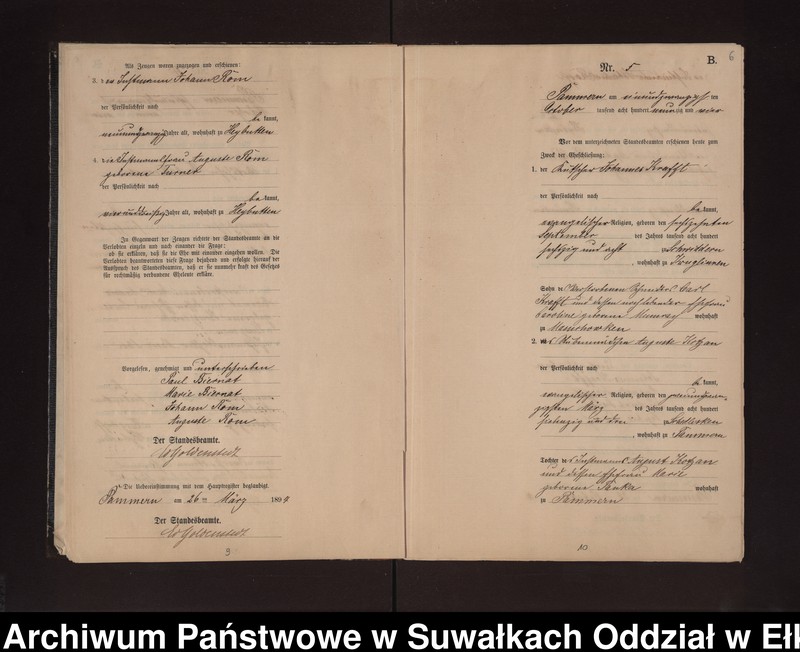 Als Zeugen waren zugezogen und erschienen:
3. der Instmann Johann Röm
der Persönlichkeit nach
be kannt,
Jahre alt, wohnhaft zu Heybutten
4. die Instmannsfrau Auguste Röm
geborene Turner
der Persönlichkeit nach
be kannt,
vierunddreißig Jahre alt, wohnhaft zu Heybutten
In Gegenwart der Zeugen richtete der Standesbeamte an die
Verlobten einzeln und nach einander die Frage:
ob sie erklären, daß sie die Ehe mit einander eingehen wollen. Die
Verlobten beantworteten diese Frage bejahend und erfolgte hierauf der
Ausspruch des Standesbeamten, daß er sie nunmehr kraft des Gesetzes
für rechtmäßig verbundene Eheleute erkläre.
Vorgelesen, genehmigt und unterschrieben
Paul Biernat
Marie Biernat
Johann Röm
Auguste Röm
Der Standesbeamte.
Die Uebereinstimmung mit dem Hauptregister beglaubigt.
Pammern am 26 ten März 1894
Der Standesbeamte.
9
B.
6
Nr. 5
Pammern am einundzwanzigsten
October tausend acht hundert neunzig und vier
Vor dem unterzeichneten Standesbeamten erschienen heute zum
Zweck der Eheschließung:
1. der Kutscher Johannes Krafft
der Persönlichkeit nach
be kannt,
evangelischer Religion, geboren den sechszehnten
September des Jahres tausend acht hundert
sechszig und acht zu Schwiddern
, wohnhaft zu
Sohn des verstorbenen Schneiders Carl
Krafft und dessen noch lebender Ehefrau
Caroline geborene wohnhaft
zu
2. die Auguste Kotzan
der Persönlichkeit nach
be kannt,
evangelischer Religion, geboren den zweiundzwan-
zigsten März des Jahres tausend acht hundert
siebenzig und drei zu
, wohnhaft zu Pammern
Tochter des Instmanns August Kotzan
und dessen Ehefrau Marie
geborene wohnhaft
zu Pammern
10
Archiwum Państwowe w Suwałkach Oddział w Ełk